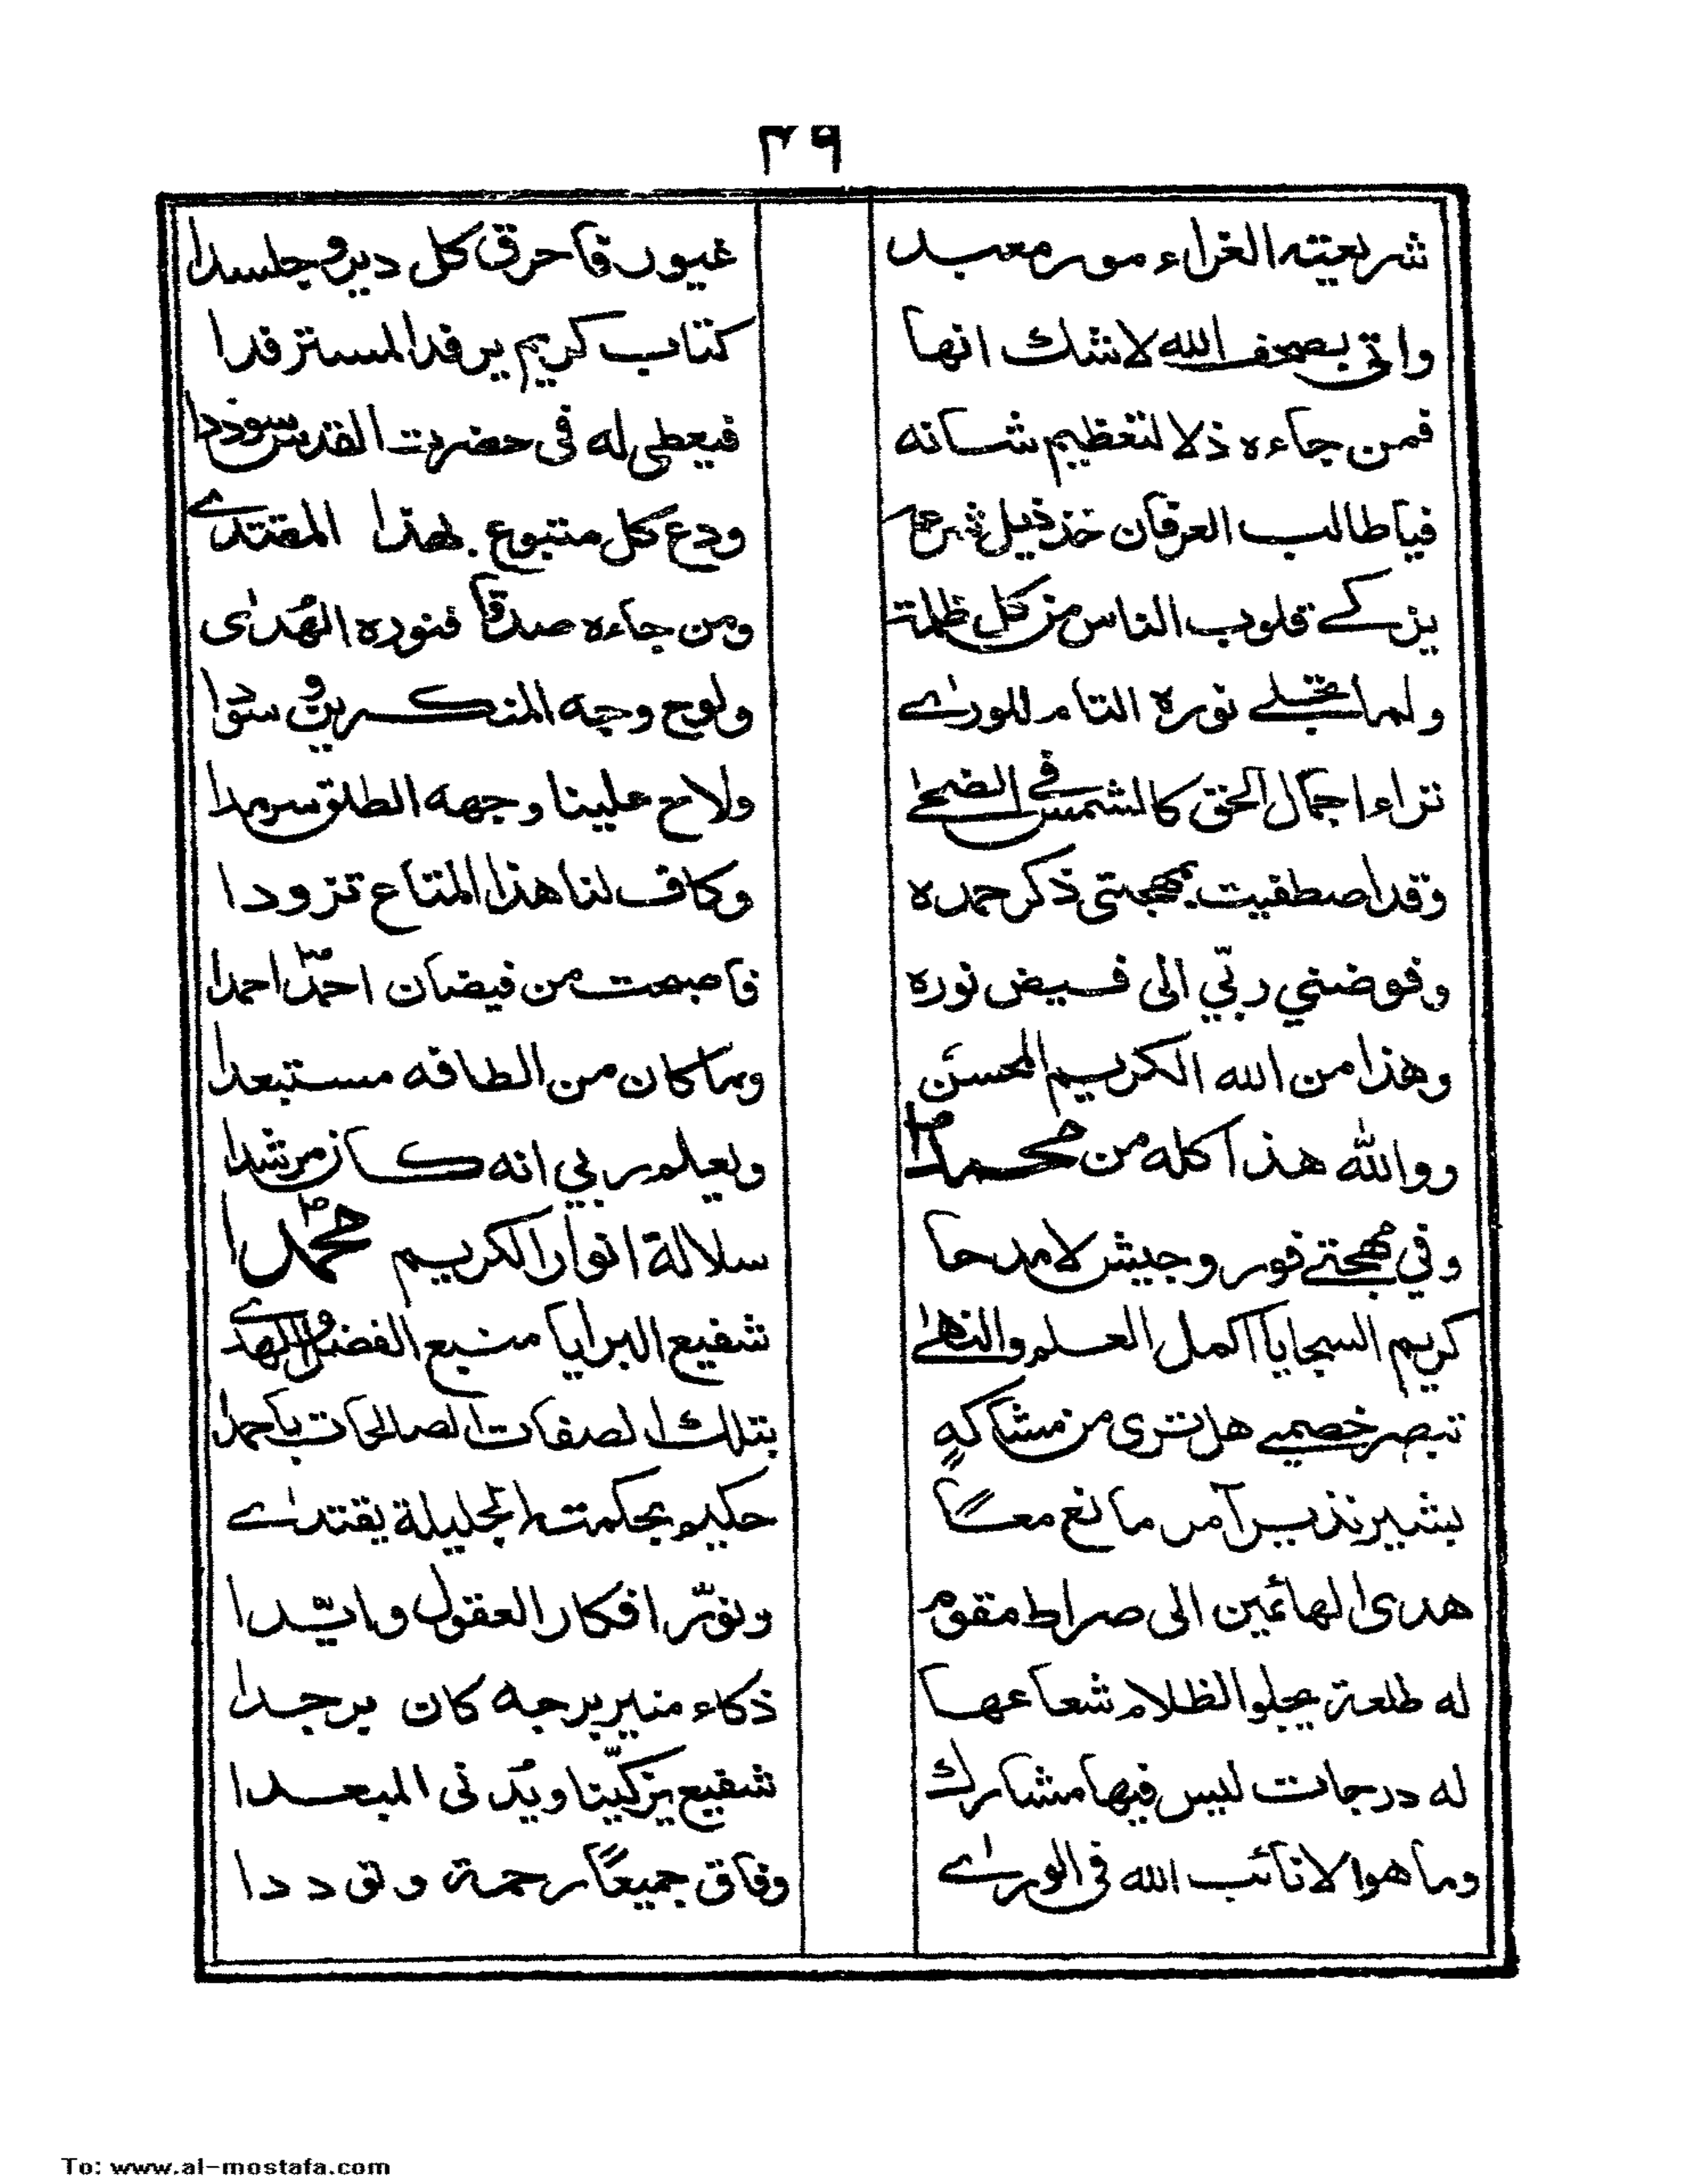 ٣٩
شريعته الغراء مور معبد غيور فاحرق كل دير وجلسدا
واتى بصحف الله لا شك انها كتاب كريم يرفد المسترفدا
فمن جاءه ذلا لتعظيم شانه فيعطى له فى حضرت القدس سوددا
فيا طالب العرفان خذ ذيل شرعه ودع كل متبوع بهذا المقتدى
يزكى قلوب الناس من كل ظلمة ومن جاءه صدقا فنوره الهُدٰى
ولما تجلى نوره التام للورٰى ولوح وجه المنكرين وسوّدا
تراءا جمال الحق كالشمس فى الضحٰى ولاح علينا وجهه الطلق سرمدا
وقد اصطفيت بمهجتى ذكر حمده وكاف لنا هذا المتاع تزودا
وفوضني ربّي الى فيض نوره فاصبحت من فيضان احمدؐ احمدا
وهذا من الله الكريم المحسن وما كان من الطافه مستبعدا
ووالله هذا كله من محمدؐا ويعلم ربي انه كان مرشدا
وفي مهجتي فور وجيش لامدحا سلالة انوار الكريم محمدؐا
كريم السجايا اكمل العلم والنهٰى شفيع البرايا منبع الفضل والهُدى
تبصر خصمي هل ترى من مشاكهٍ بتلك الصفات الصالحات باحمدا
بشير نذير آمر مانع معًا حكيم بحكمته الجليلة يقتدٰى
هدى الهائمين الى صراط مقوم ونوّر افكار العقول وايّدا
له طلعة يجلو الظلام شعاعها ذكاء منير برجه كان برجدا
له درجات ليس فيها مشارك شفيع يزكّينا ويُدنى المبعدا
وما هو الا نائب الله فى الورٰى وفاق جميعًا رحمة وتوددا
To: www.al-mostafa.com